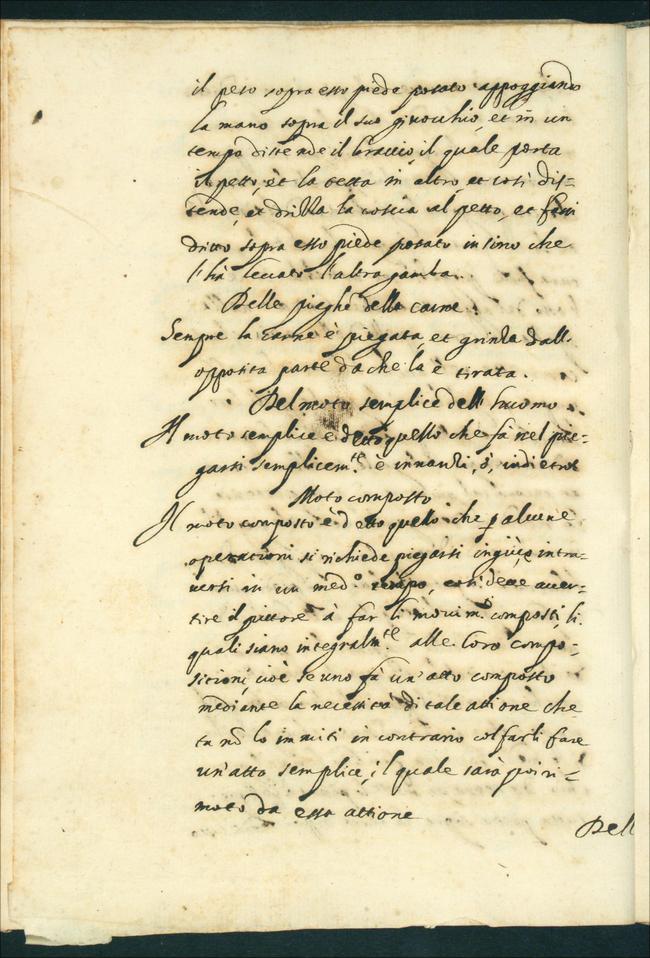 il peso sopra esso piede posato appoggiando
la mano sopra il suo ginocchio, et in un
tempo distende il braccio, il quale porta
il petto, et la testa in altro, et così dis=
tende, et drizza la coscia al petto, et fassi
dritto sopra esso piede posato insino che
l'hà levato l'altra gamba.
Delle pieghe della carne.
Sempre la carne è piegata, et grinza dall'
opposita parte da che la è tirata.
Del moto semplice dell' huomo.
Il moto semplice è detto quello che fà nel pie=
garsi semplicem.te è innanzi, ò, indietro
Moto composto
Il moto composto è detto quello che p alcune
operationi si richiede piegarsi ingiù, e intra=
versi in un med.o tempo, così deve auer=
tire il pittore à far li movim.ti composti, li
quali siano integralm.te alle loro compo=
sitioni, cioè se uno fà un'atto composto
mediante la necessità di tale attione che
tu nō lo imiti in contrario col farli fare
un'atto semplice, il quale sarà poi ri=
moto da essa attione
Dell